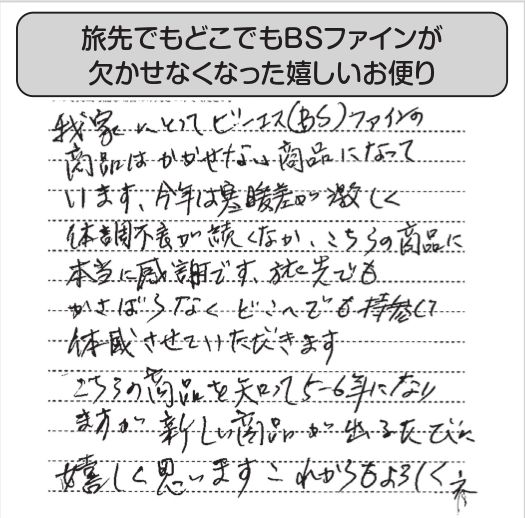 旅先でもどこでもBSファインが
欠かせなくなった嬉しいお便り
我家にとってビーエス(BS)ファインの
商品はかかせない商品になって
います、今年は寒暖差が激しく
体調不良が続くなか、こちらの商品に
本当に感謝です、旅先でも
かさばらなくどこへでも持参して
体感させていただきます
こちらの商品を知って5-6年になり
ますが新しい商品が出るたびに
嬉しく思いますこれからもよろしく